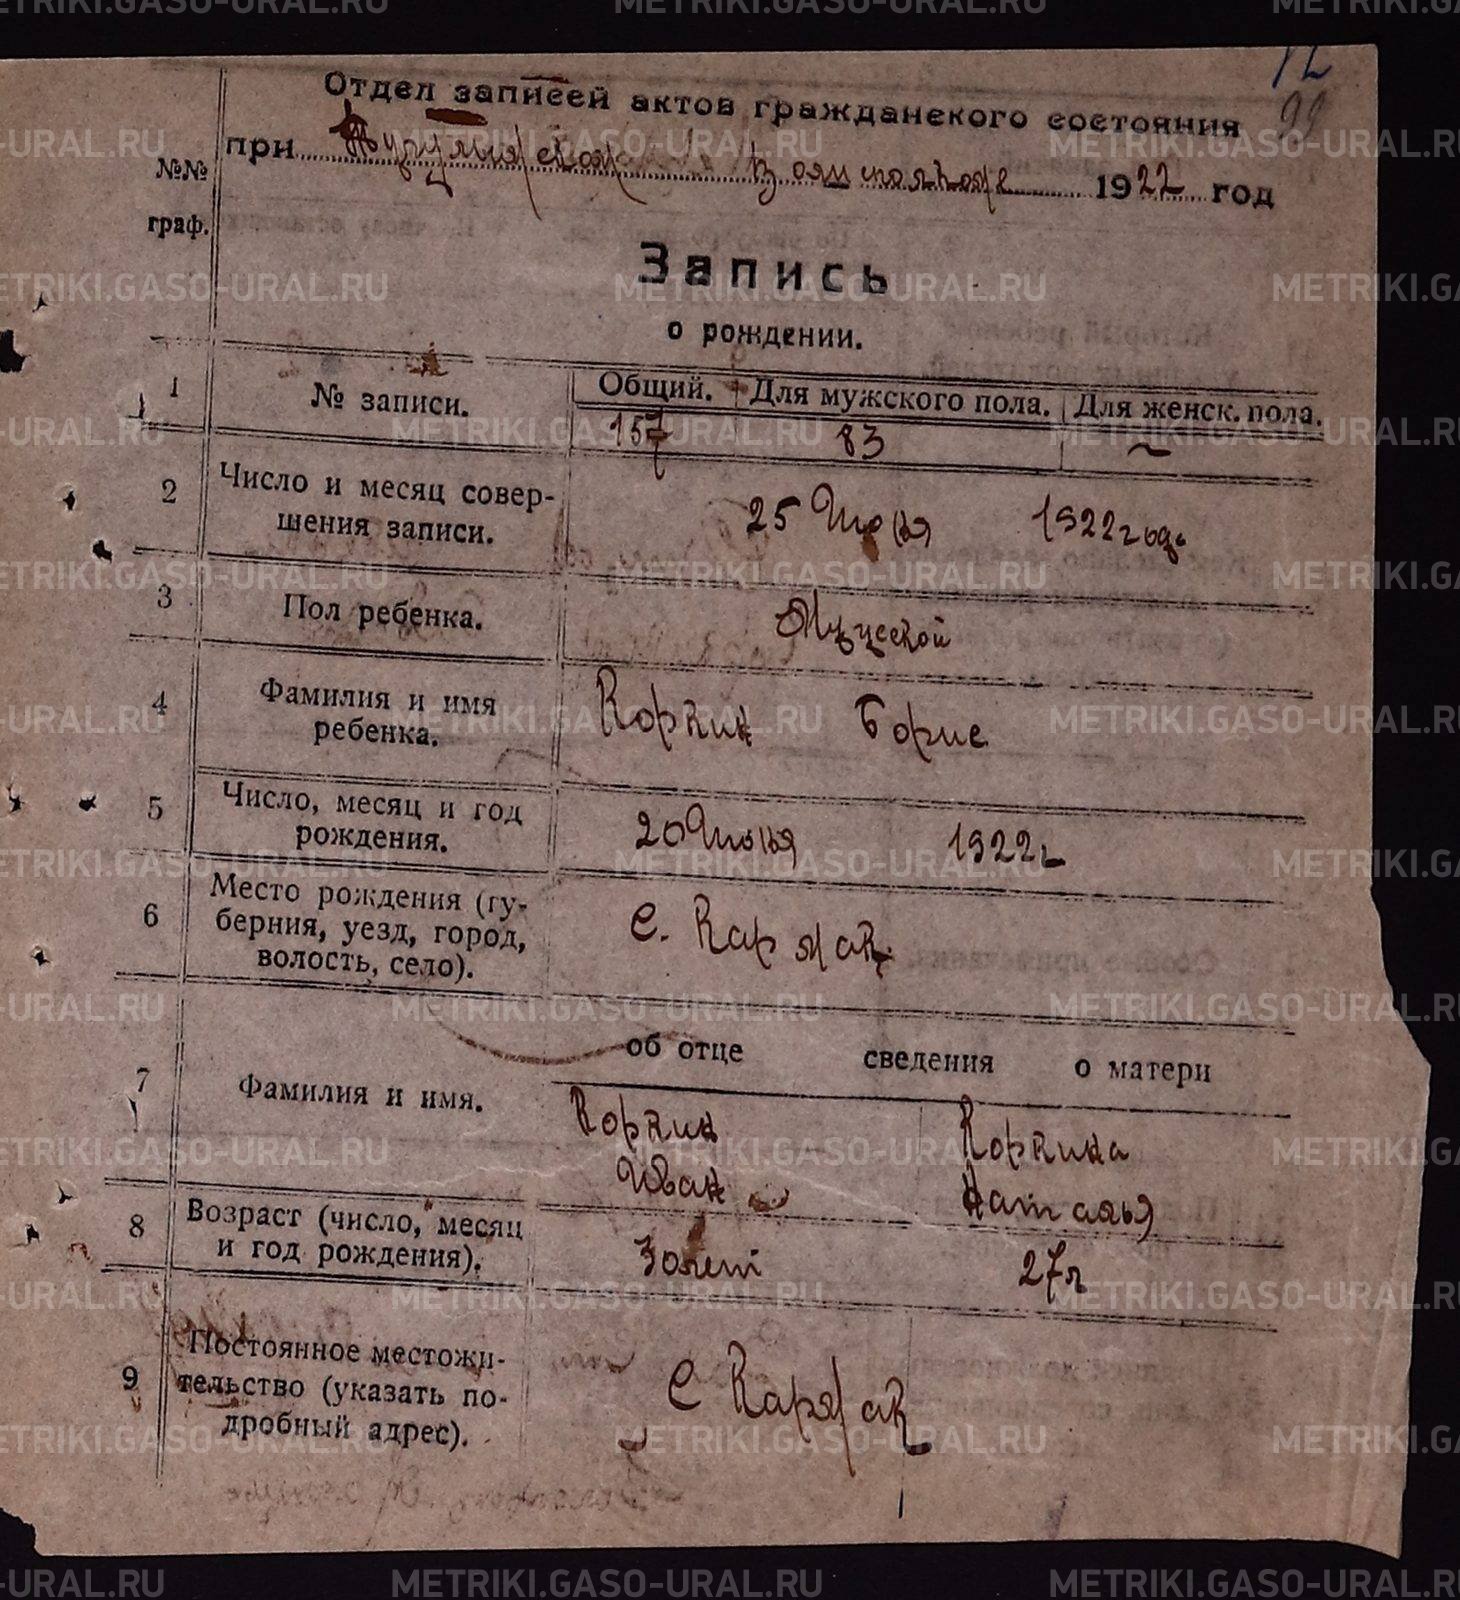 12
99
Отдел записей актов гражданского состояния
при Тугулымском Волисполкоме 1922 год
№№
граф.
Запись
о рождении.
1 № записи. Общий. Для мужского пола. Для женск. пола.
157 83 ~
2 Число и месяц совер-
шения записи. 25 Июля 1922 год.
3 Пол ребенка. Мужской
4 Фамилия и имя
ребенка. Коркин Борис
5 Число, месяц и год
рождения. 20 Июля 1922 г
6 Место рождения (гу-
берния, уезд, город,
волость, село). С. Кармак
об отце сведения о матери
7 Фамилия и имя. Коркин Коркина
Иван Наталья
8 Возраст (число, месяц
и год рождения). 30 лет 27 л
9 Постоянное местожи-
тельство (указать по-
дробный адрес). С Кармак
METRIKI.GASO-URAL.RU